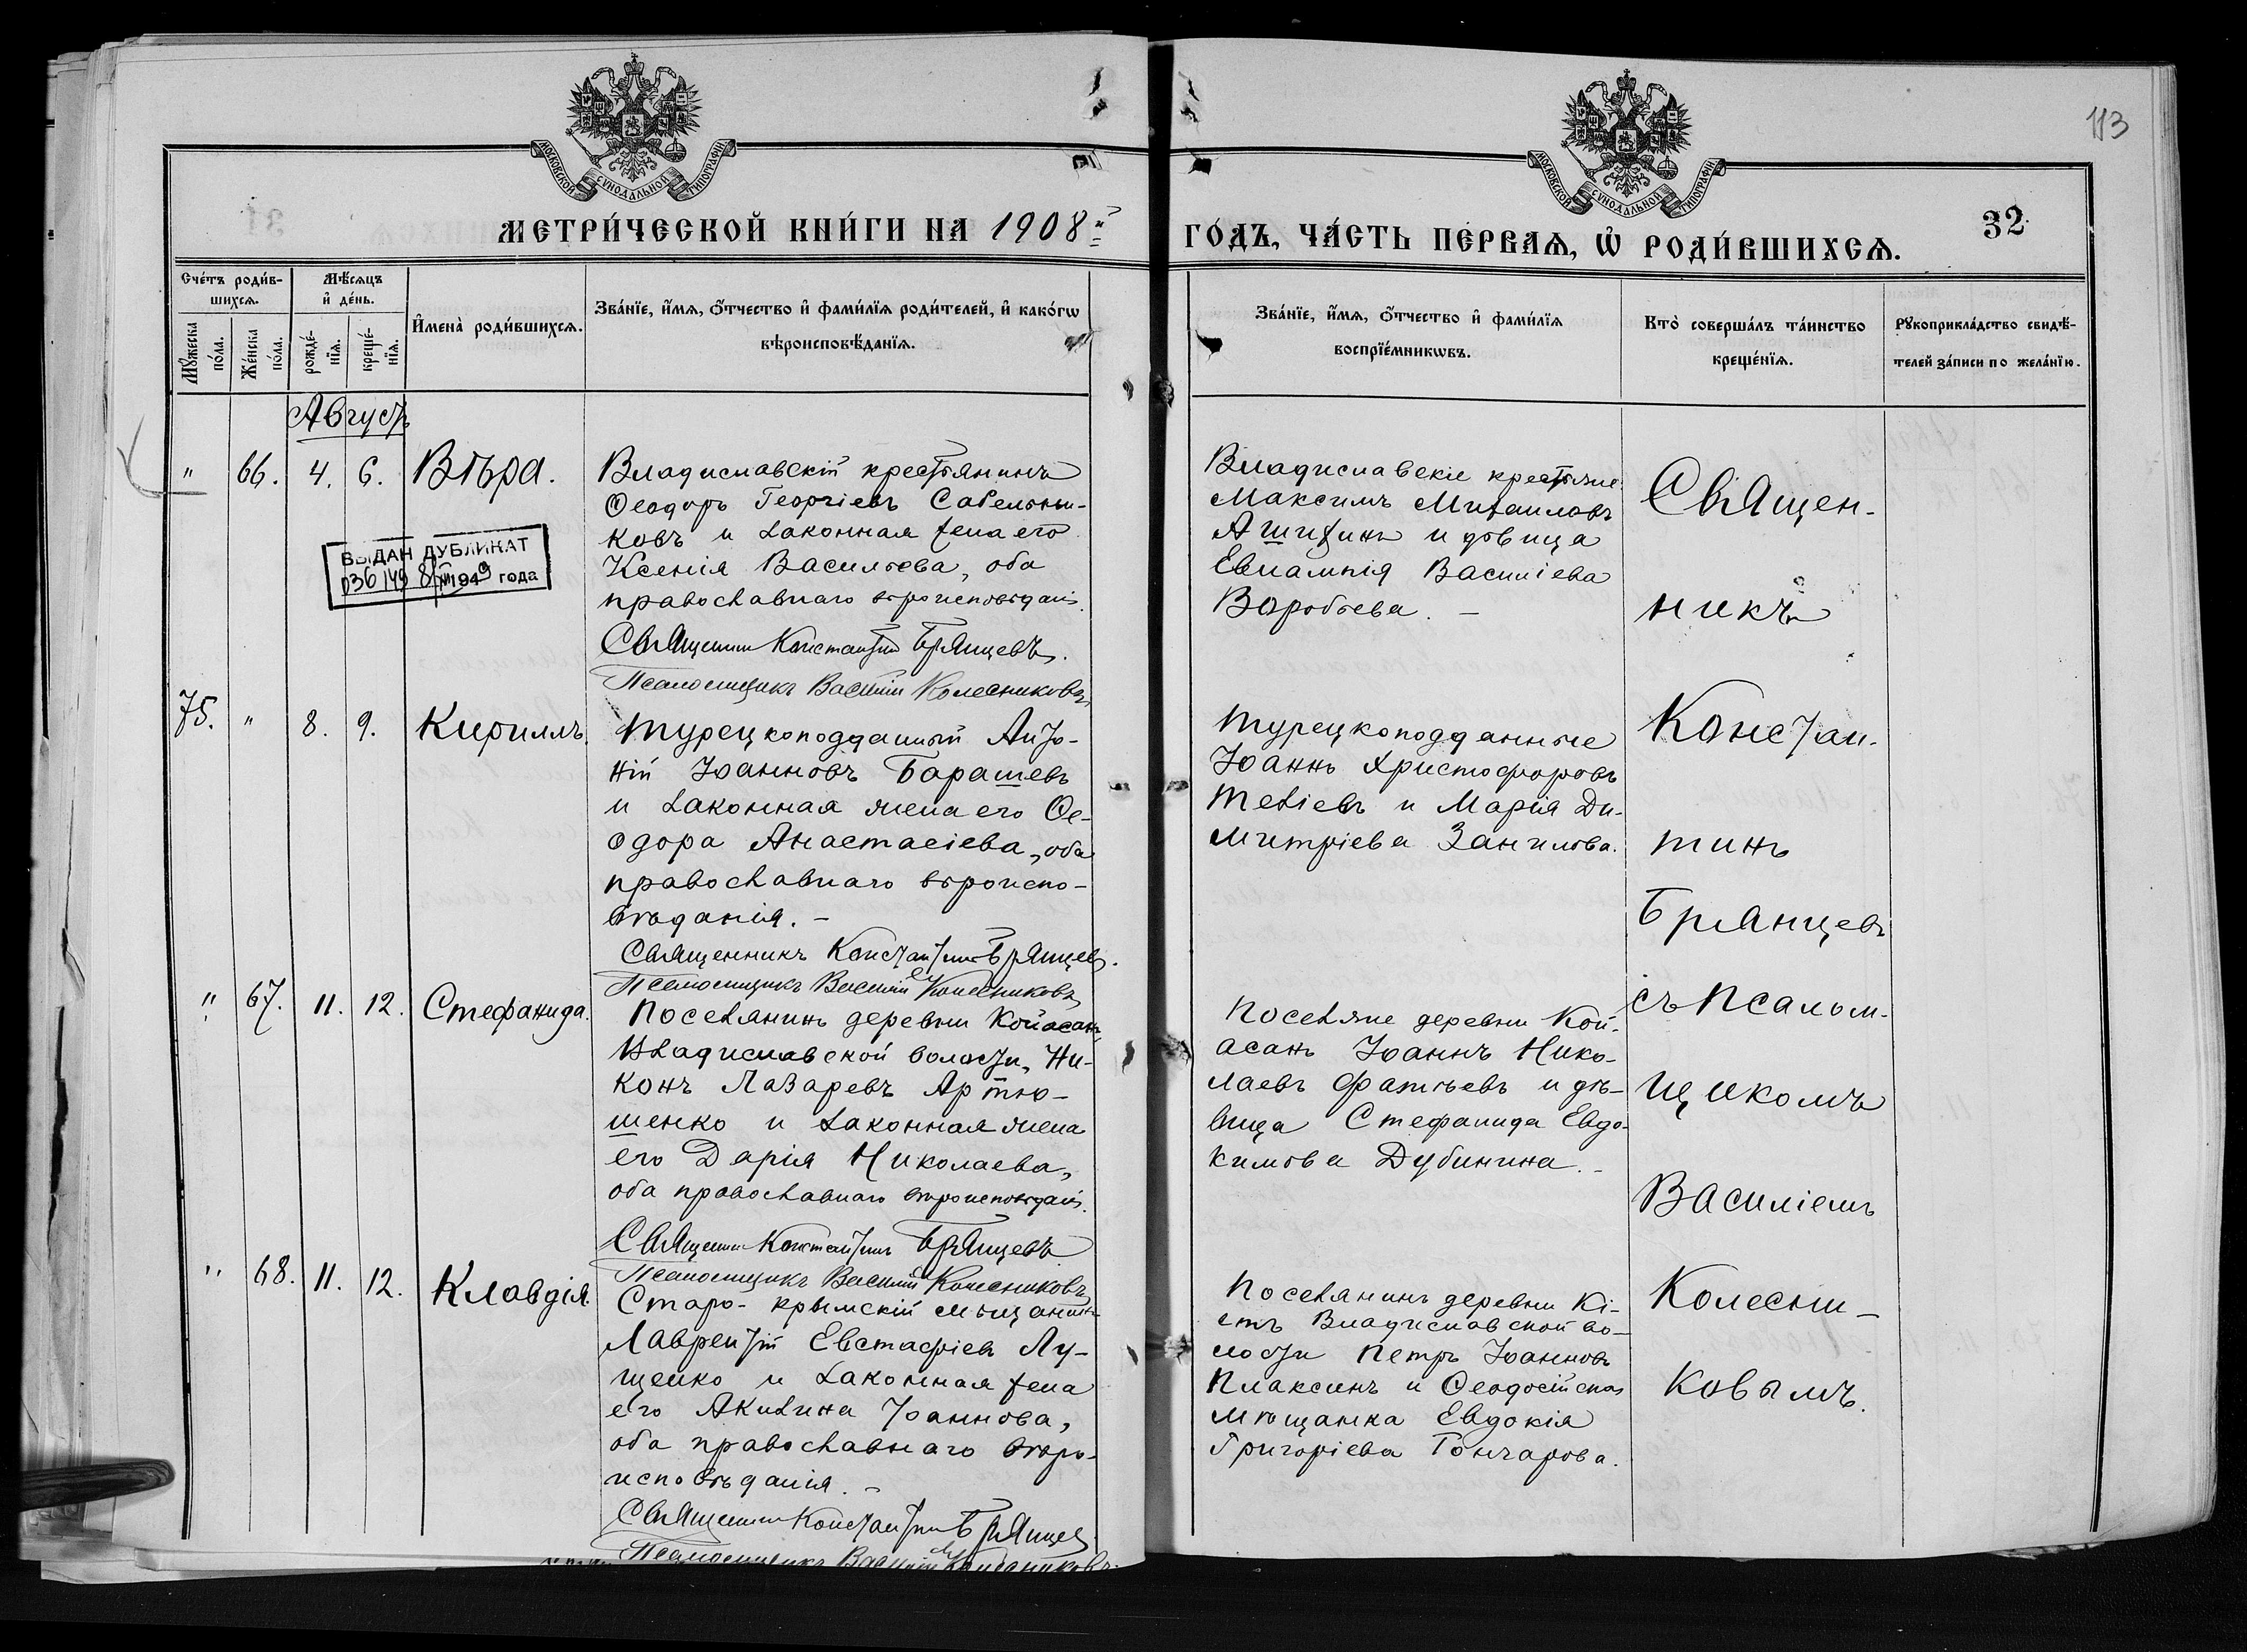 113
МОСКОВСКОЙ СѴНОДАЛЬНОЙ ТИПОГРАФІИ
МОСКОВСКОЙ СѴНОДАЛЬНОЙ ТИПОГРАФІИ
МЕТРИ́ЧЕСКОЙ КНИ́ГИ НА 1908й
ГО́ДЪ, ЧА́СТЬ ПЕ́РВАѦ, Ѡ҆ РОДИ́ВШИХСѦ.
32
Сче́тъ роди́в-
шихсѧ.
Мѣ́сѧцъ
и҆ де́нь.
Мꙋ́жеска
по́ла.
Же́нска
по́ла.
рожде́-
нїѧ.
креще́-
нїѧ.
И҆мена̀ роди́вшихсѧ.
Зва́нїе, и҆́мѧ, ѻ҆́тчество и҆ фами́лїѧ роди́телей, и҆ како́гѡ
вѣроисповѣ́данїѧ.
Зва́нїе, и҆́мѧ, ѻ҆́тчество и҆ фами́лїѧ
воспрїе́мникѡвъ.
Кто̀ соверша́лъ та́инство
креще́нїѧ.
Рꙋкоприкла́дство свидѣ́-
телей за́писи по жела́нїю.
Августъ
" 66. 4. 6. Вѣра.
Владиславскій крестьянинъ
Ѳеодоръ Георгіевъ Сабельни-
ковъ и законная жена его
Ксенія Васильева, оба
православнаго вѣроисповѣданія.
Священникъ Константинъ Брянцевъ.
Псаломщикъ Василій Колесниковъ
ВЫДАН ДУБЛИКАТ
036149 8/XII 1949 года
Владиславскіе крестьяне
Максимъ Михаиловъ
Ашихинъ и дѣвица
Евлампія Василіева
Воробьева. –
75. " 8. 9. Кириллъ.
Турецкоподданный Анто-
ній Іоанновъ Барашевъ
и законная жена его Ѳе-
одора Анастасіева, оба
православнаго вѣроиспо-
вѣданія. –
Священникъ Константинъ Брянцевъ.
Псаломщикъ Василій Колесниковъ
Турецкоподданные
Іоаннъ Христофоровъ
и Марія Ди-
митріева
" 67. 11. 12. Стефанида.
Поселянинъ деревни Койасанъ,
Владиславской волости, Ни-
конъ Лазаревъ Артю-
шенко и законная жена
его Дарія Николаева,
оба православнаго вѣроисповѣданія.
Священникъ Константинъ Брянцевъ
Псаломщикъ Василій Колесниковъ
Поселяне деревни Кой-
асанъ Іоаннъ Нико-
лаевъ Фатѣевъ и дѣ-
вица Стефанида Евдо-
кимова Дубинина. –
" 68. 11. 12. Клавдія.
Старо-крымскій мѣщанинъ
Лаврентій Евстафіевъ Лу-
щенко и законная жена
его Акилина Іоаннова,
оба православнаго вѣро-
исповѣданія. –
Священникъ Константинъ Брянцевъ
Псаломщикъ Василій Колесниковъ.
Поселянинъ деревни Кі-
етъ Владиславской во-
лости Петръ Іоанновъ
Плаксинъ и Ѳеодосійская
мѣщанка Евдокія
Григоріева Гончарова.
Священ-
никъ
Констан-
тинъ
Брянцевъ
съ псалом-
щикомъ
Василіемъ
Колесни-
ковымъ.